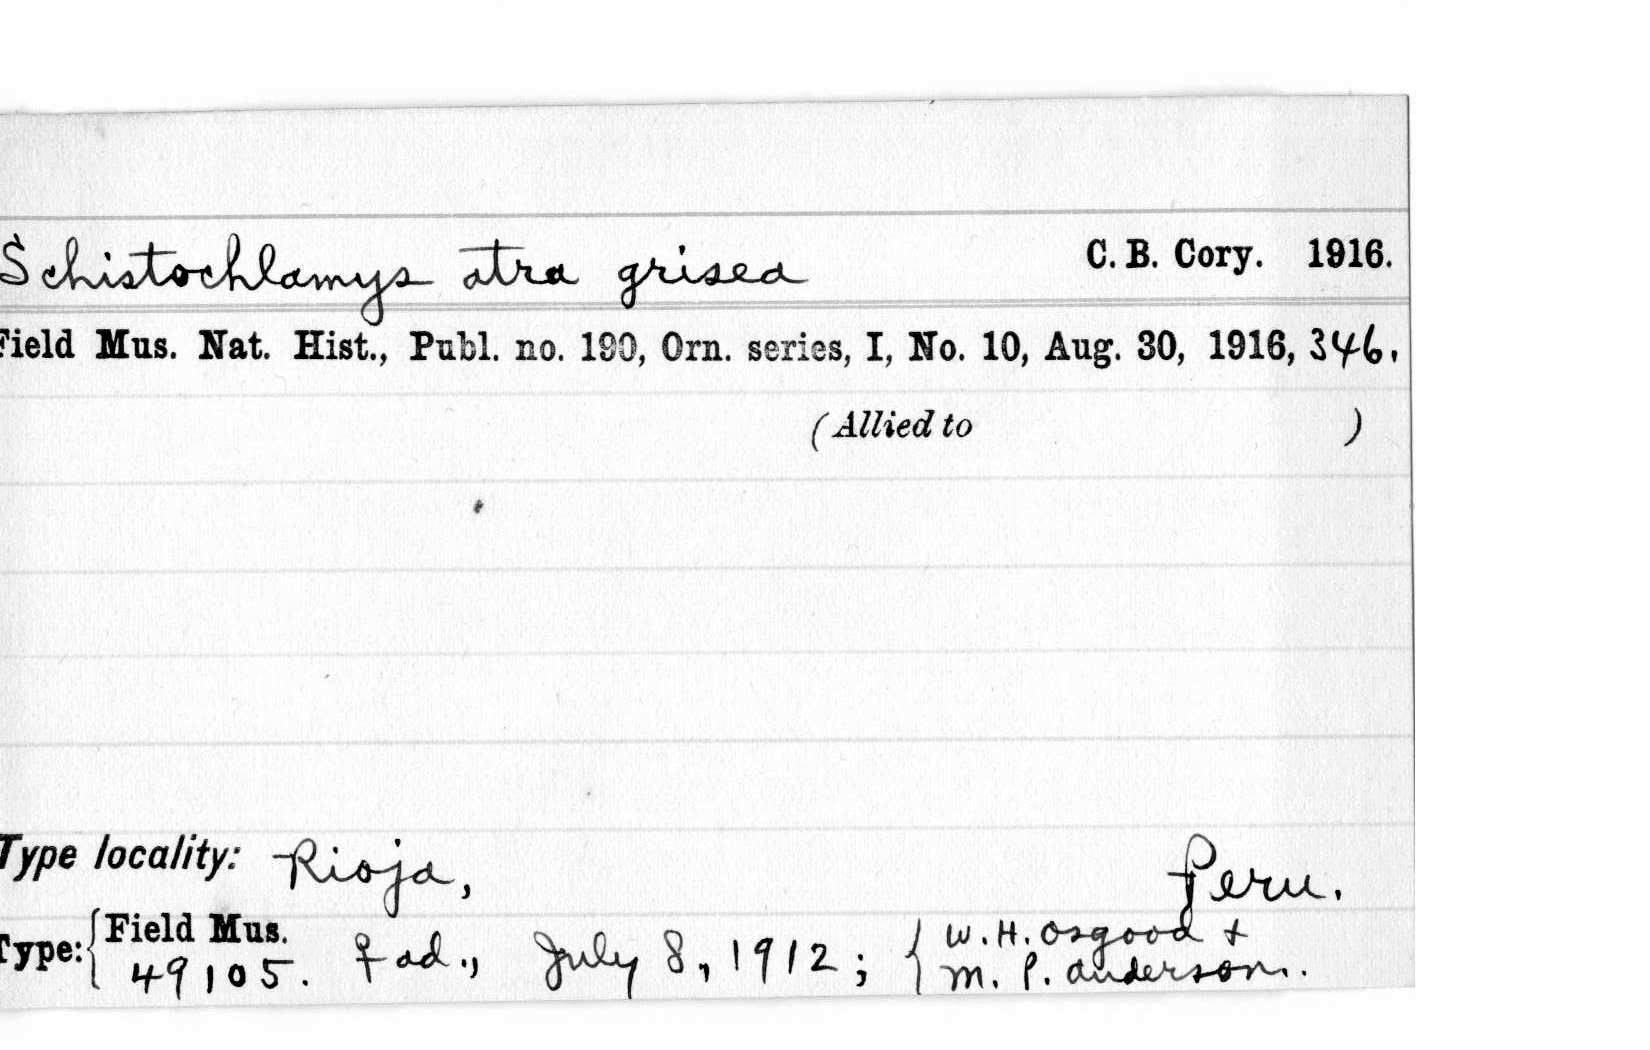 Schistochlamys atra grisea C. B. Cory. 1916.
Field Mus. Nat. Hist., Publ. no. 190, Orn. series, I, No. 10, Aug. 30, 1916, 346.
(Allied to )
Type locality: Rioja, Peru.
Type: { Field Mus. 49105. ♀ ad., July 8, 1912; { W. H. Osgood +
M. P. Anderson.